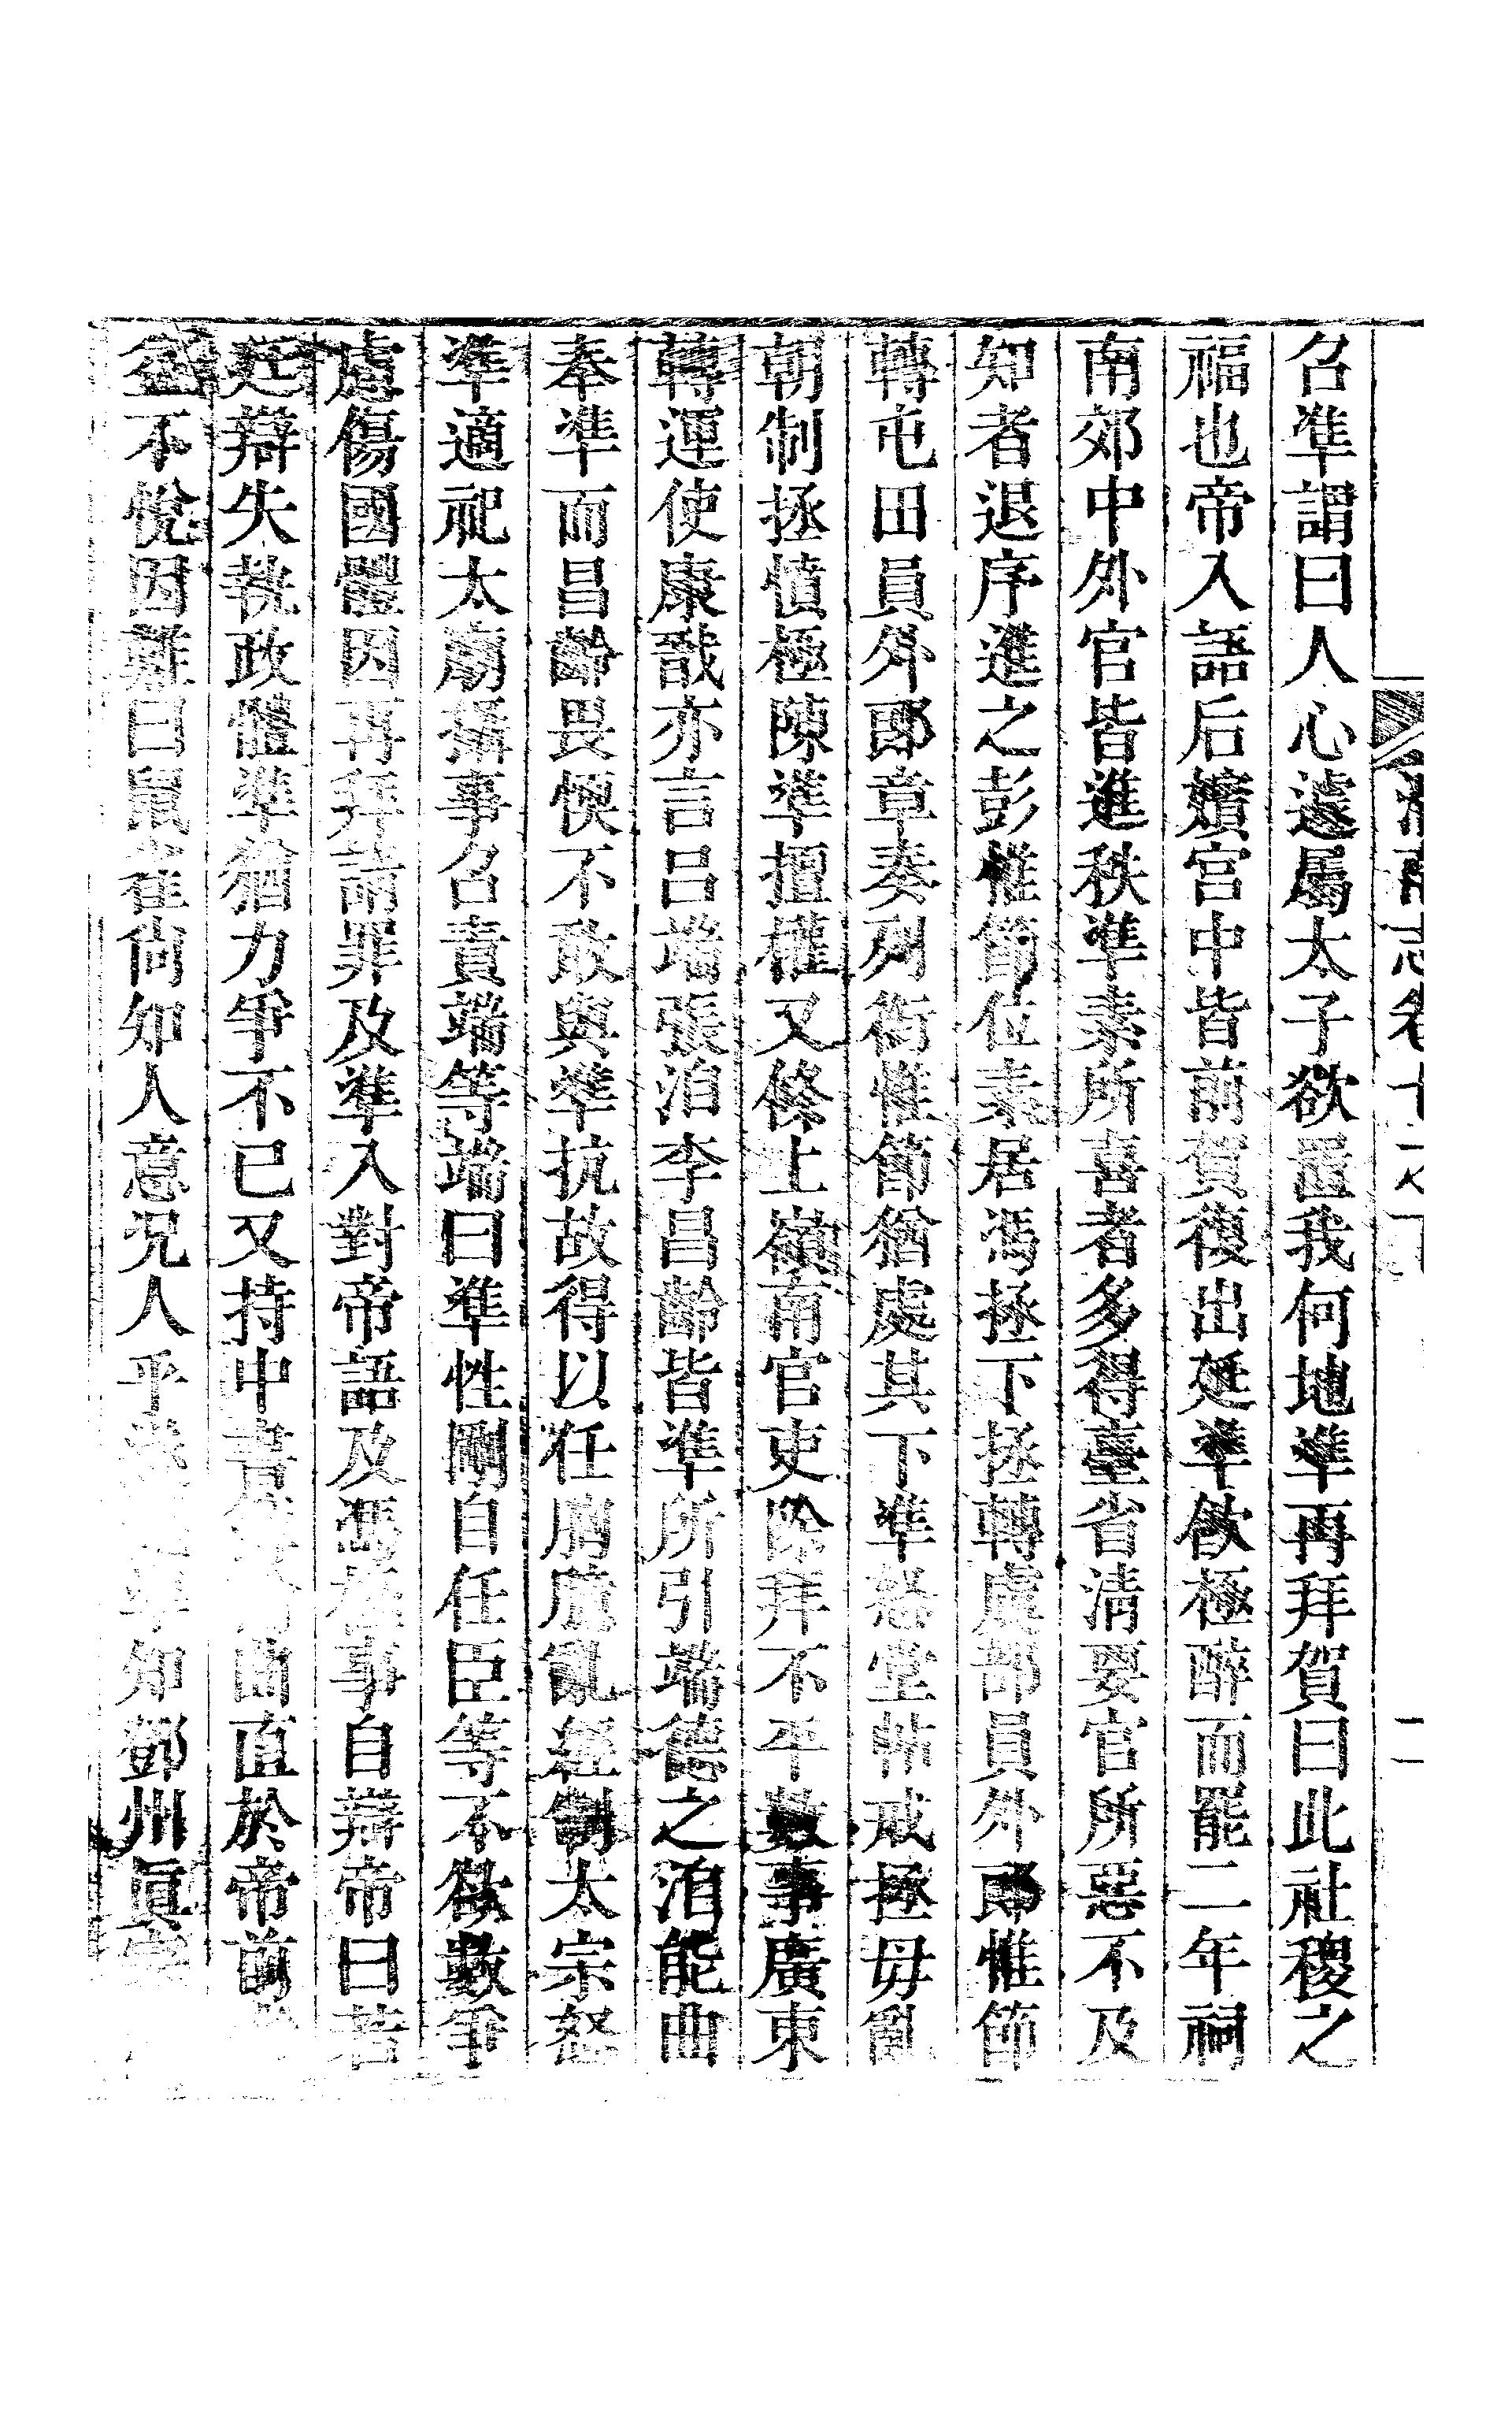 志卷十六下
二
召準謂曰人心遽屬太子欲置我何地準再拜賀曰此社稷之
福也帝入語后嬪宮中皆前賀復出延準飲極醉而罷二年祠
南郊中外官皆進秩準素所喜者多得臺省清要官所惡不及
知者退序進之彭惟節位素居馮拯下拯轉虞部員外郎惟節
轉屯田員外郎章奏列銜惟節猶處其下準怒堂帖戒拯毋亂
朝制拯憤極陳準擅權又條上嶺南官吏除拜不平數事廣東
轉運使康戩亦言呂端張洎李昌齡皆準所引端德之洎能曲
奉準而昌齡畏愞不敢與準抗故得以任胸臆亂經制太宗怒
準適祀太廟攝事召責端等端曰準性剛自任臣等不欲數爭
慮傷國體因再拜請罪及準入對帝語及馮拯事自辯帝曰若
廷辯失執政體準猶力爭不已又持中書曲直於帝前
不悅因歎曰鼠雀尚知人意况人乎知鄧州眞宗